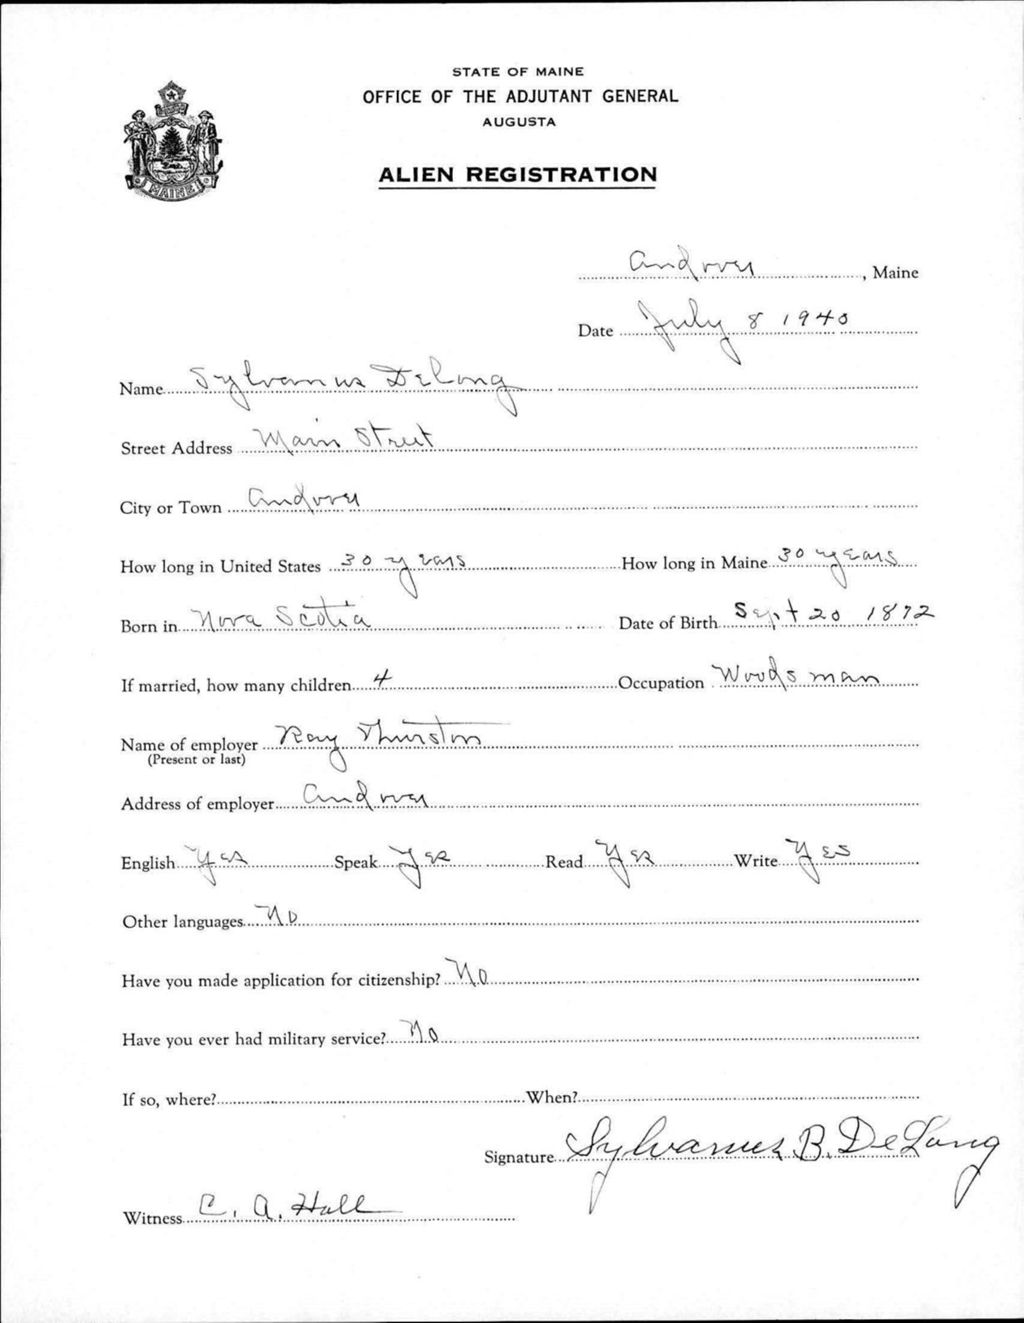 STATE OF MAINE
OFFICE OF THE ADJUTANT GENERAL
AUGUSTA
ALIEN REGISTRATION
MAINE
Andover, Maine
Date July 8 1940
Name Sylvanus DeLong
Street Address Main Street
City or Town Andover
How long in United States 30 years How long in Maine 30 years
Born in Nova Scotia Date of Birth Sept 20 1872
If married, how many children 4 Occupation Woodsman
Name of employer Ray Thurston
(Present or last)
Address of employer Andover
English Yes Speak Yes Read Yes Write Yes
Other languages No
Have you made application for citizenship? No
Have you ever had military service? No
If so, where? When?
Signature Sylvanus B. DeLong
Witness C. A. Hall